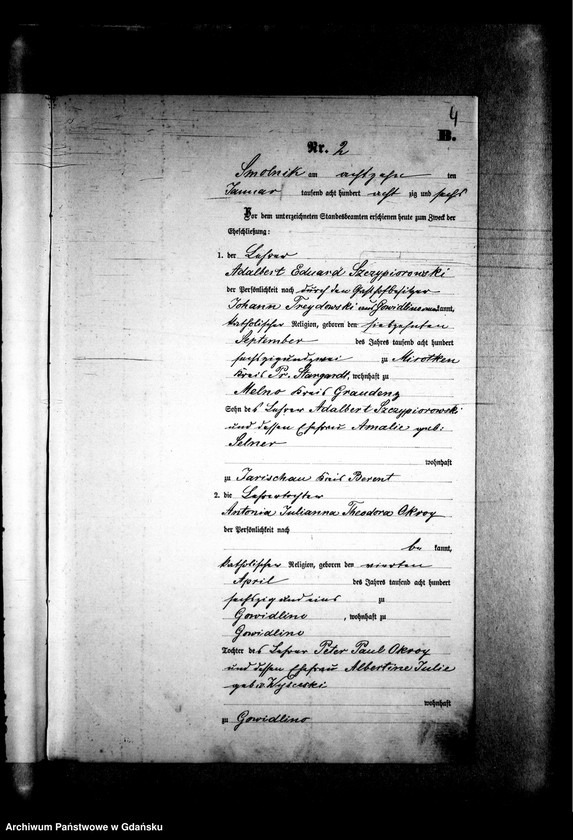 4
B.
Nr. 2
Smolnik am achtzehn ten
Januar tausend acht hundert acht zig und sechs
Vor dem unterzeichneten Standesbeamten erschienen heute zum Zweck der
Eheschließung:
1. der Lehrer
Adalbert Eduard Szczypiorowski
der Persönlichkeit nach durch den Gasthofbesitzer
Johann Treydowski aus Gowidlino kannt,
katholischer Religion, geboren den siebzehnten
September des Jahres tausend acht hundert
sechszigundzwei zu Mirotken
Kreis Pr. Stargardt, wohnhaft zu
Melno Kreis Graudenz
Sohn des Lehrer Adalbert Szczypiorowski
und dessen Ehefrau Amalie geb:
Selner
wohnhaft
zu Jarischau Kreis Berent
2. die Lehrertochter
Antonia Julianna Theodora Okroy
der Persönlichkeit nach
be kannt,
katholischer Religion, geboren den vierten
April des Jahres tausend acht hundert
sechszig und eins zu
Gowidlino , wohnhaft zu
Gowidlino
Tochter des Lehrer Peter Paul Okroy
und dessen Ehefrau Albertine Julie
geb: Wysecki
wohnhaft
zu Gowidlino
Archiwum Państwowe w Gdańsku